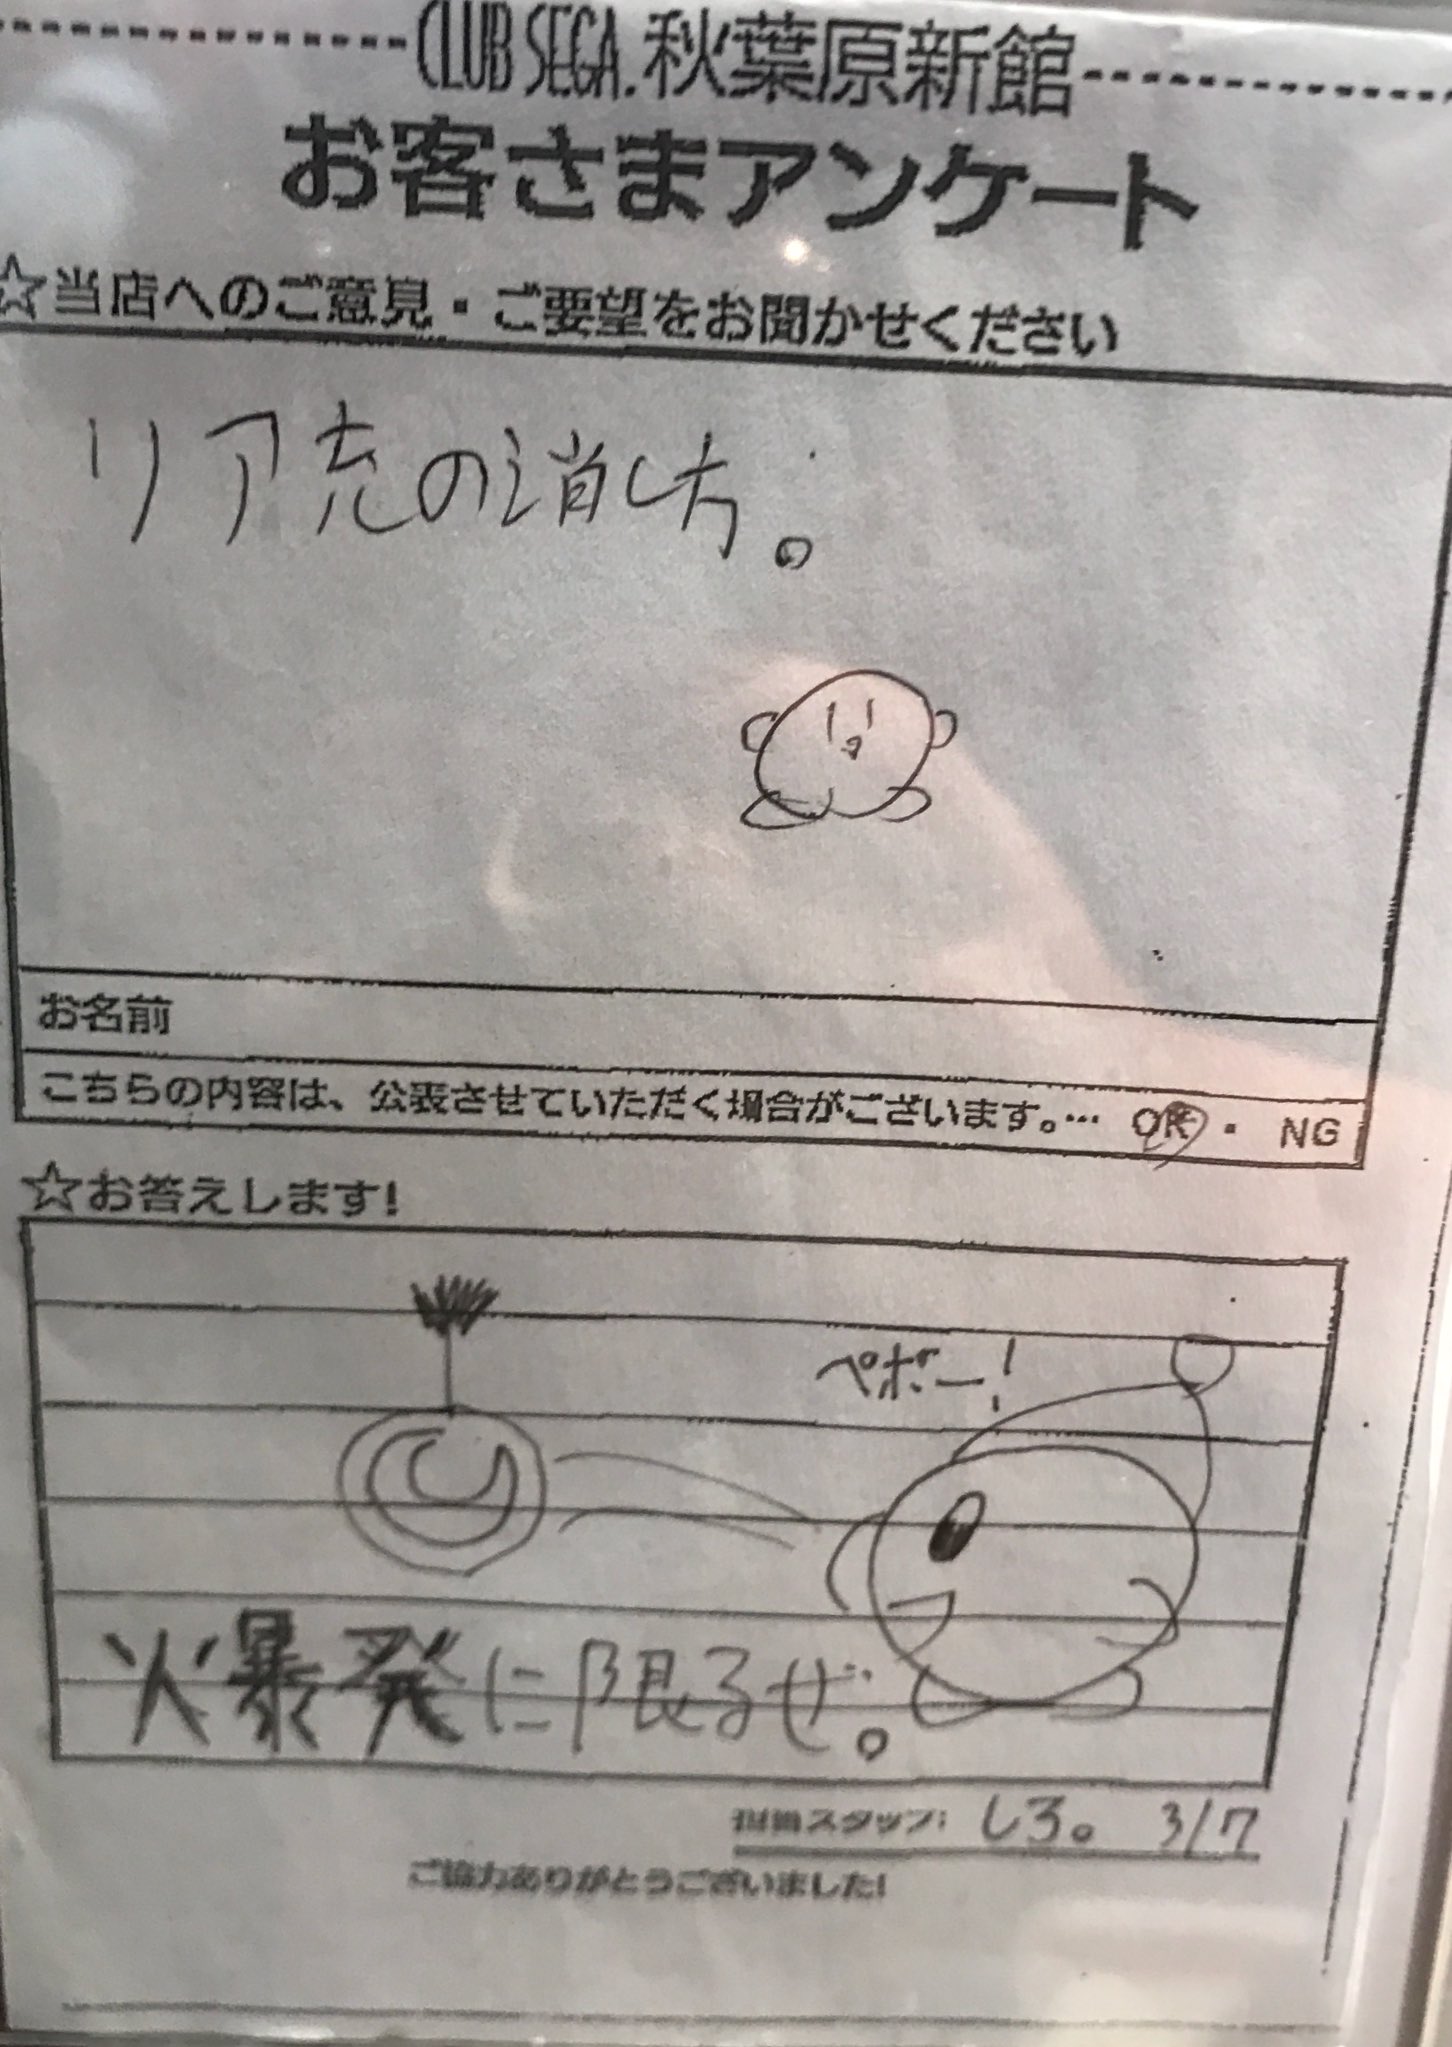 CLUB SEGA.秋葉原新館
お客さまアンケート
☆当店へのご意見・ご要望をお聞かせください
リア充の消し方。
お名前
こちらの内容は、公表させていただく場合がございます。… OK ・ NG
☆お答えします!
ペポー!
爆発に限るぜ。
担当スタッフ: しろ。 3/7
ご協力ありがとうございました!